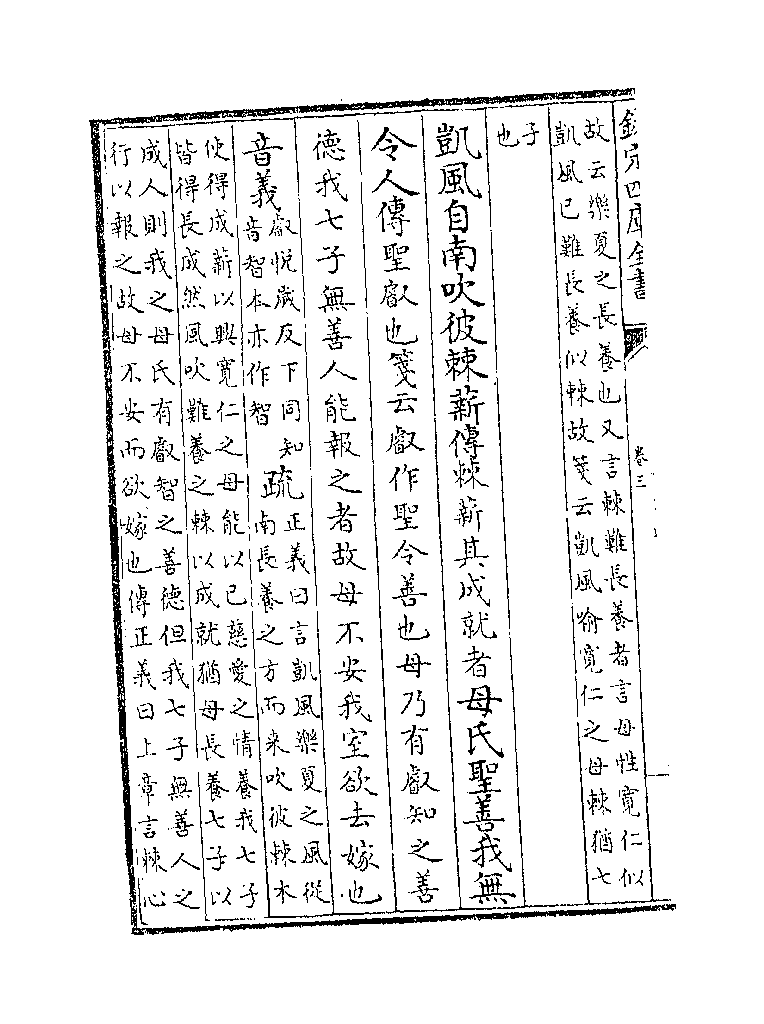 欽定四庫全書
卷三
故云樂夏之長養也又言棘難長養者言母性寬仁似
凱風已難長養似棘故箋云凱風喻寬仁之母棘猶七
子
也
凱風自南吹彼棘薪傳棘薪其成就者母氏聖善我無
令人傳聖叡也箋云叡作聖令善也母乃有叡知之善
德我七子無善人能報之者故母不安我室欲去嫁也
音義
叡悅歲反下同知
音智本亦作智
疏
正義曰言凱風樂夏之風從
南長養之方而来吹彼棘木
使得成薪以興寬仁之母能以己慈愛之情養我七子
皆得長成然風吹難養之棘以成就猶母長養七子以
成人則我之母氏有叡智之善德但我七子無善人之
行以報之故母不安而欲嫁也傳正義曰上章言棘心